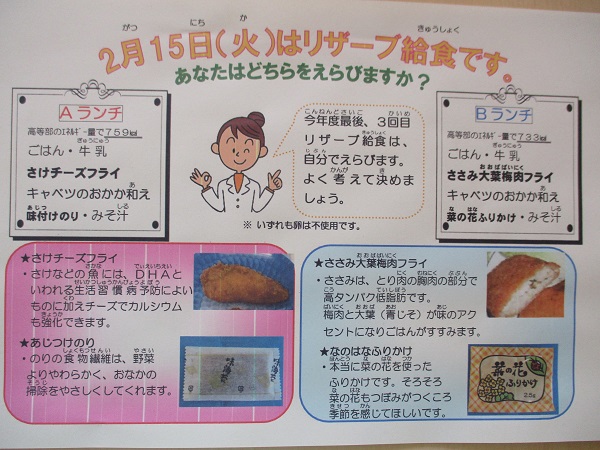 2月15日(火)はリザーブ給食です。
あなたはどちらをえらびますか?
Aランチ
高等部のエネルギー量で759kcal
ごはん・牛乳
さけチーズフライ
キャベツのおかか和え
味付けのり・みそ汁
今年度最後、3回目
リザーブ給食は、
自分でえらびます。
よく考えて決めま
しょう。
※ いずれも卵は不使用です。
Bランチ
高等部のエネルギー量で733kcal
ごはん・牛乳
ささみ大葉梅肉フライ
キャベツのおかか和え
菜の花ふりかけ・みそ汁
★さけチーズフライ
・さけなどの魚には、DHAと
いわれる生活習慣病予防によい
ものに加えチーズでカルシウム
も強化できます。
★あじつけのり
・のりの食物繊維は、野菜
よりやわらかく、おなかの
掃除をやさしくしてくれます。
★ささみ大葉梅肉フライ
・ささみは、とり肉の胸肉の部分で
高タンパク低脂肪です。
梅肉と大葉(青じそ)が味のアク
セントになりごはんがすすみます。
★なのはなふりかけ
・本当に菜の花を使った
ふりかけです。そろそろ
菜の花もつぼみがつくころ
季節を感じてほしいです。
菜の花
ふりかけ